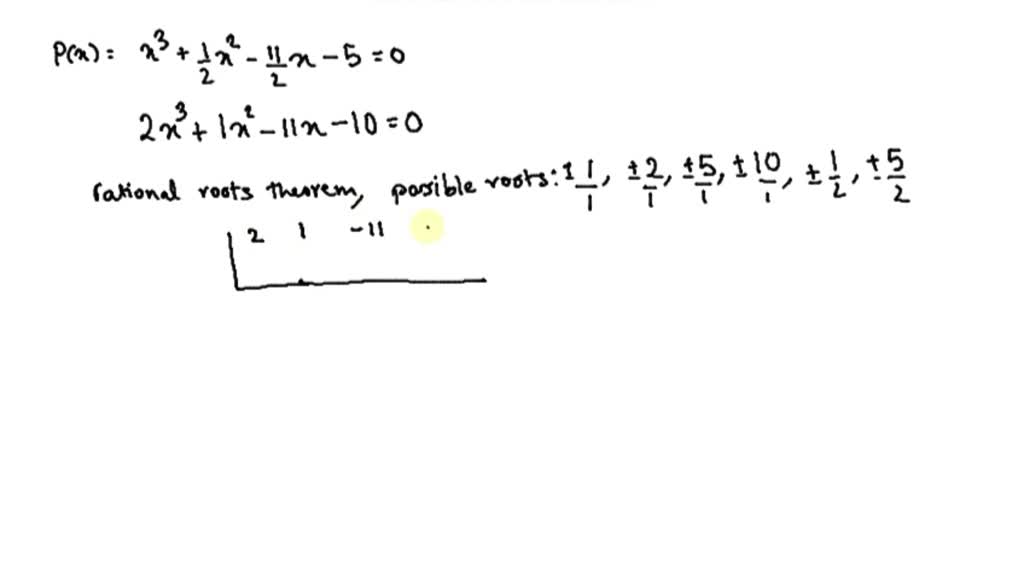 P(x) = x³ + 1/2 x² - 11/2 x - 5 = 0
2x³ + 1x² - 11x - 10 = 0
rational roots theorem, possible roots: ± 1/1, ± 2/1, ± 5/1, ± 10/1, ± 1/2, ± 5/2
2 1 -11